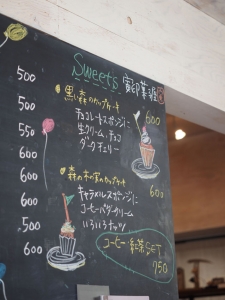 Sweets
500
黒い森のカップケーキ 600
500
チョコレートスポンジに
550
生クリーム、チョコ
ダークチェリー
600
600
森の木の実のカップケーキ 600
600
キャラメルスポンジに
500
コーヒーバタークリーム
600
いろいろナッツ
コーヒー SET
950